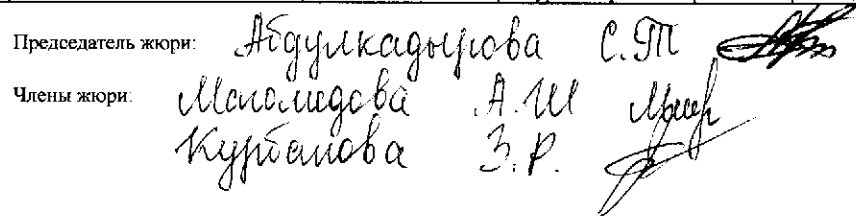 Председатель жюри: Абдулкадырова С.П
Члены жюри: Магомедова А.Ш
Курбанова З.Р.